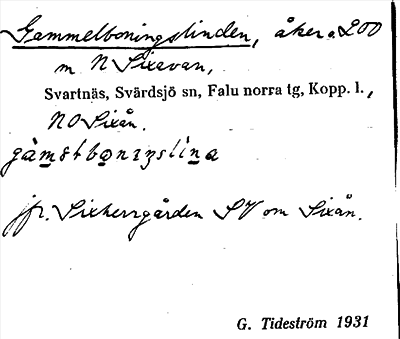 Gammelboningslinden, åker c. 200
m N Sixevan,
Svartnäs, Svärdsjö sn, Falu norra tg, Kopp. l.,
NO Sixån.
jfr. Sixherrgården SV om Sixån.
G. Tideström 1931